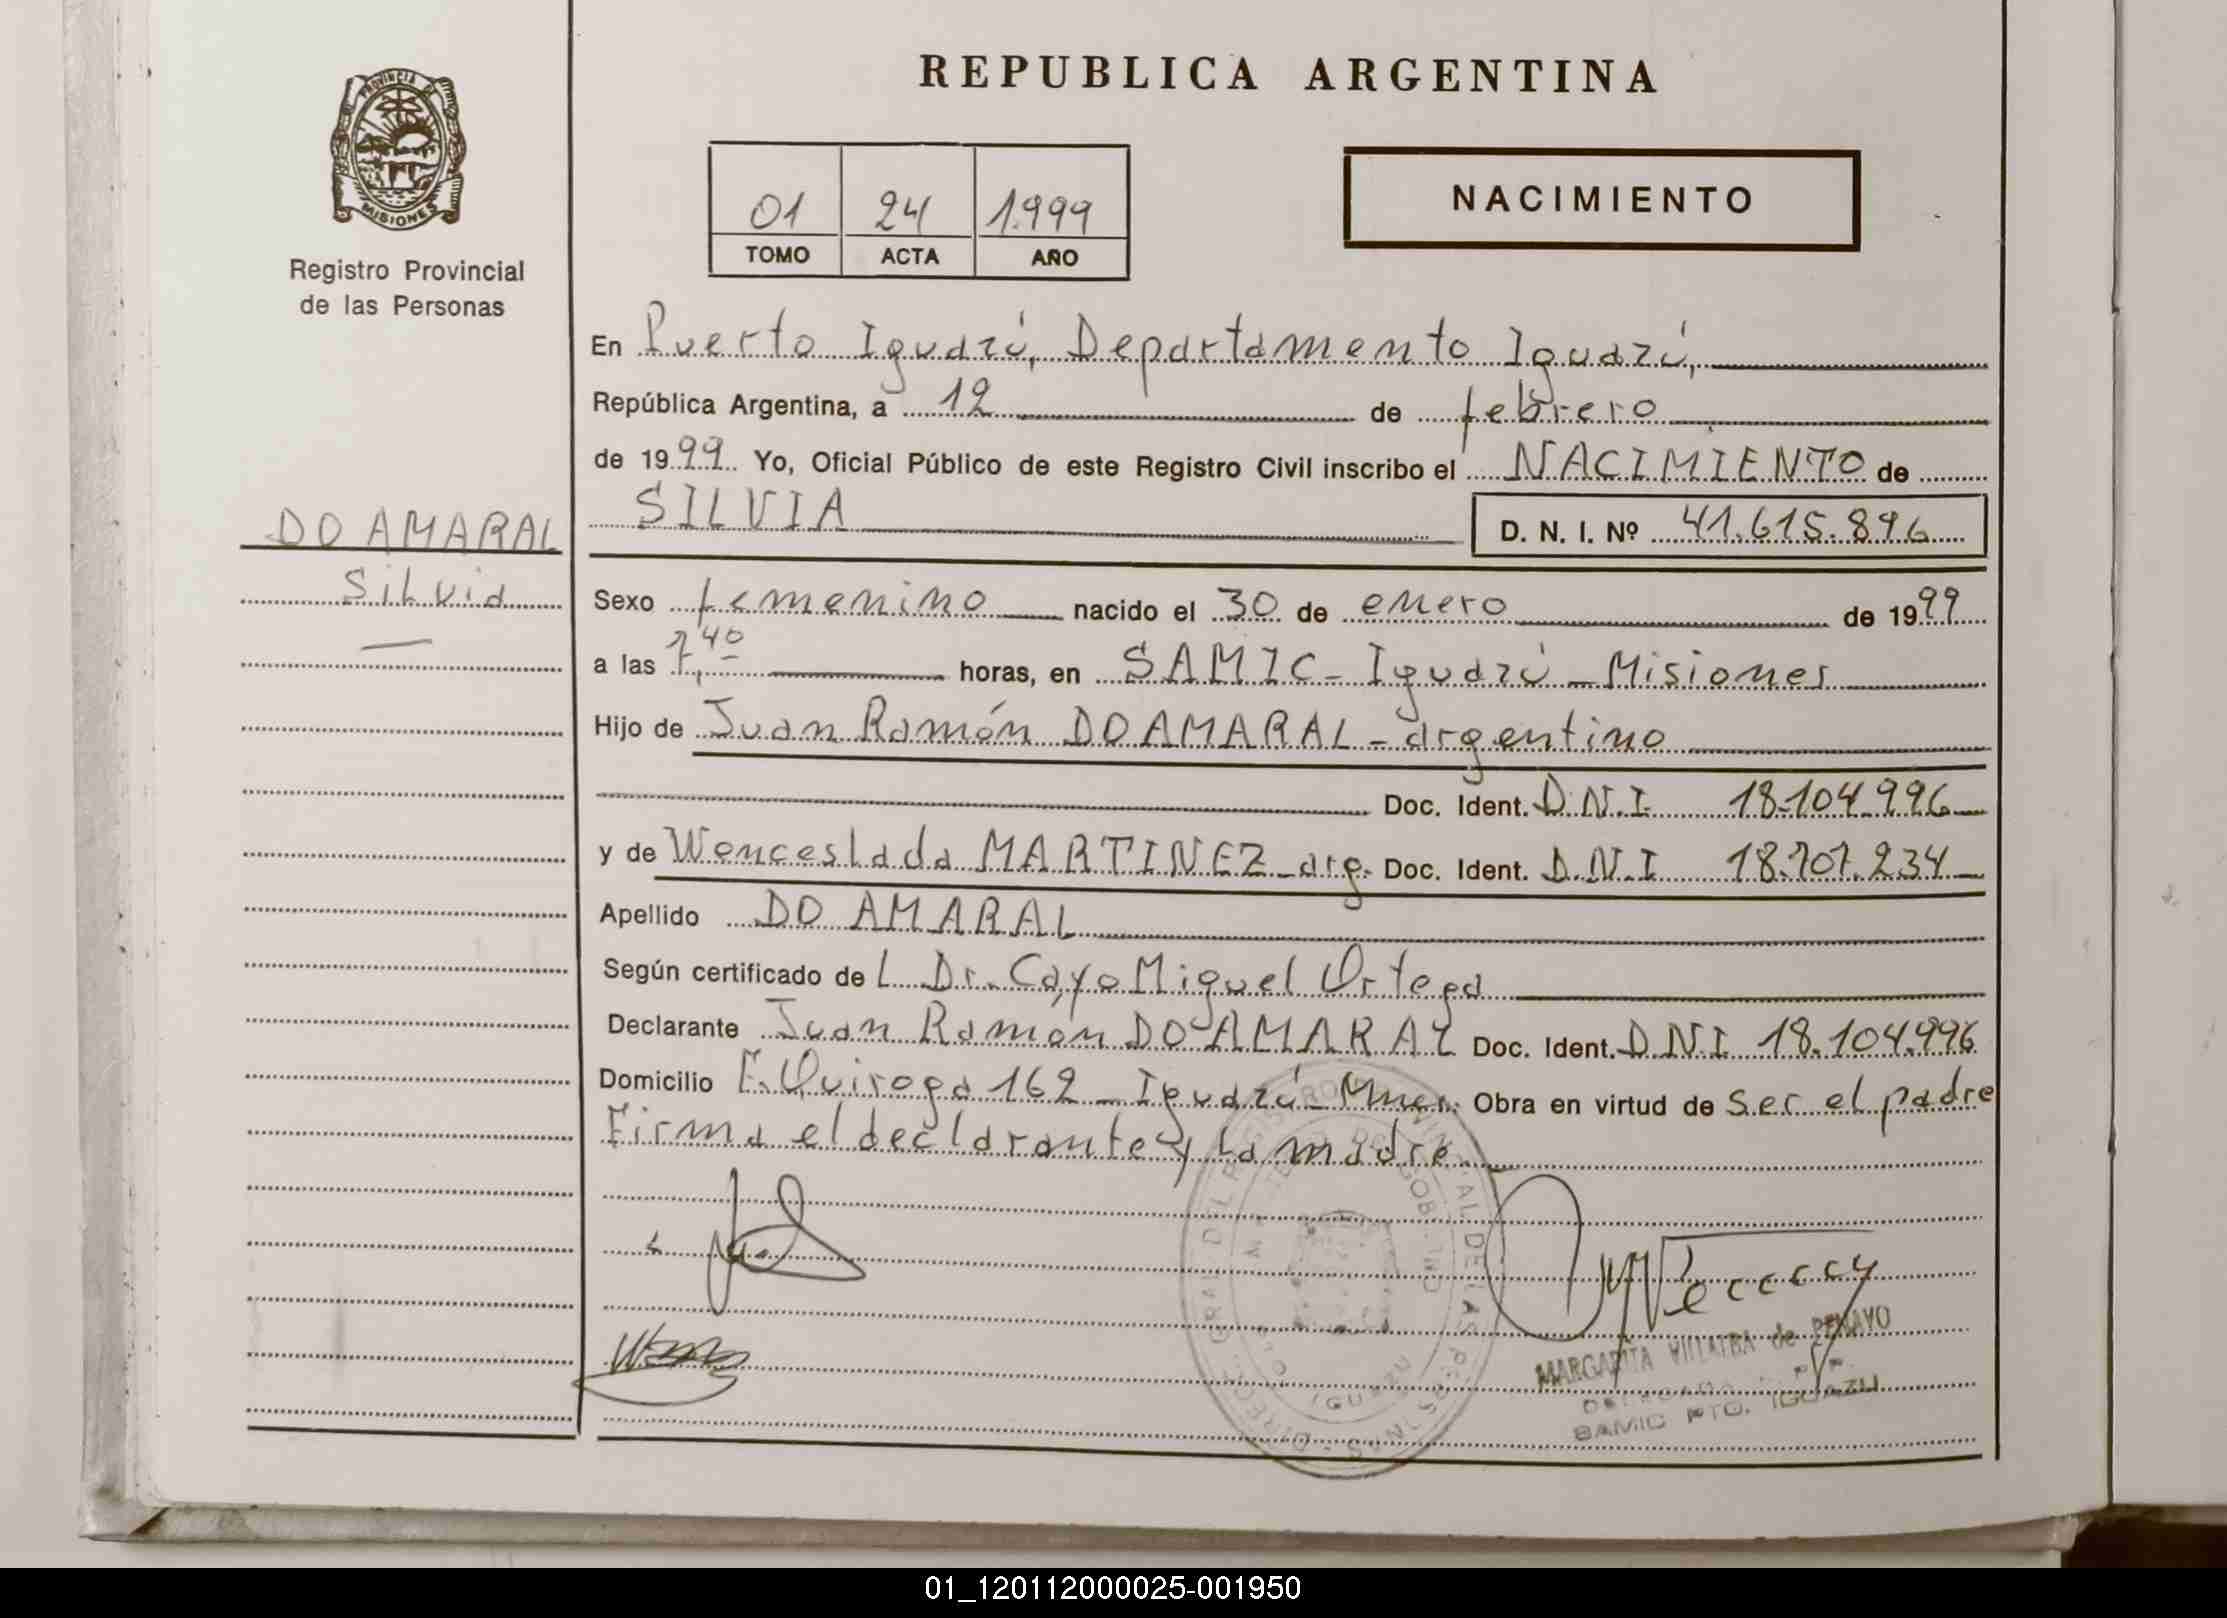 REPUBLICA ARGENTINA
PROVINCIA DE
MISIONES
Registro Provincial
de las Personas
01 24 1.999
TOMO ACTA AÑO
NACIMIENTO
En Puerto Iguazú, Departamento Iguazú,
República Argentina, a 12 de febrero
de 1999 Yo, Oficial Público de este Registro Civil inscribo el NACIMIENTO de
SILVIA
D. N. I. Nº 41.615.896
DO AMARAL
Silvia
Sexo femenino nacido el 30 de enero de 1999
a las 7,40 horas, en SAMIC - Iguazú - Misiones
Hijo de Juan Ramón DO AMARAL - argentino
Doc. Ident. D.N.I 18.104.996
y de Wenceslada MARTINEZ - arg. Doc. Ident. D.N.I 18.707.234
Apellido DO AMARAL
Según certificado de L Dr. Cayo Miguel Ortega
Declarante Juan Ramón DO AMARAL Doc. Ident. D.N.I 18.104.996
Domicilio F. Quiroga 162 - Iguazú - Mnes. Obra en virtud de ser el padre
Firma el declarante y la madre
MARGARITA VILLALBA de PENAYO
SAMIC PTO. IGUAZU
01_120112000025-001950